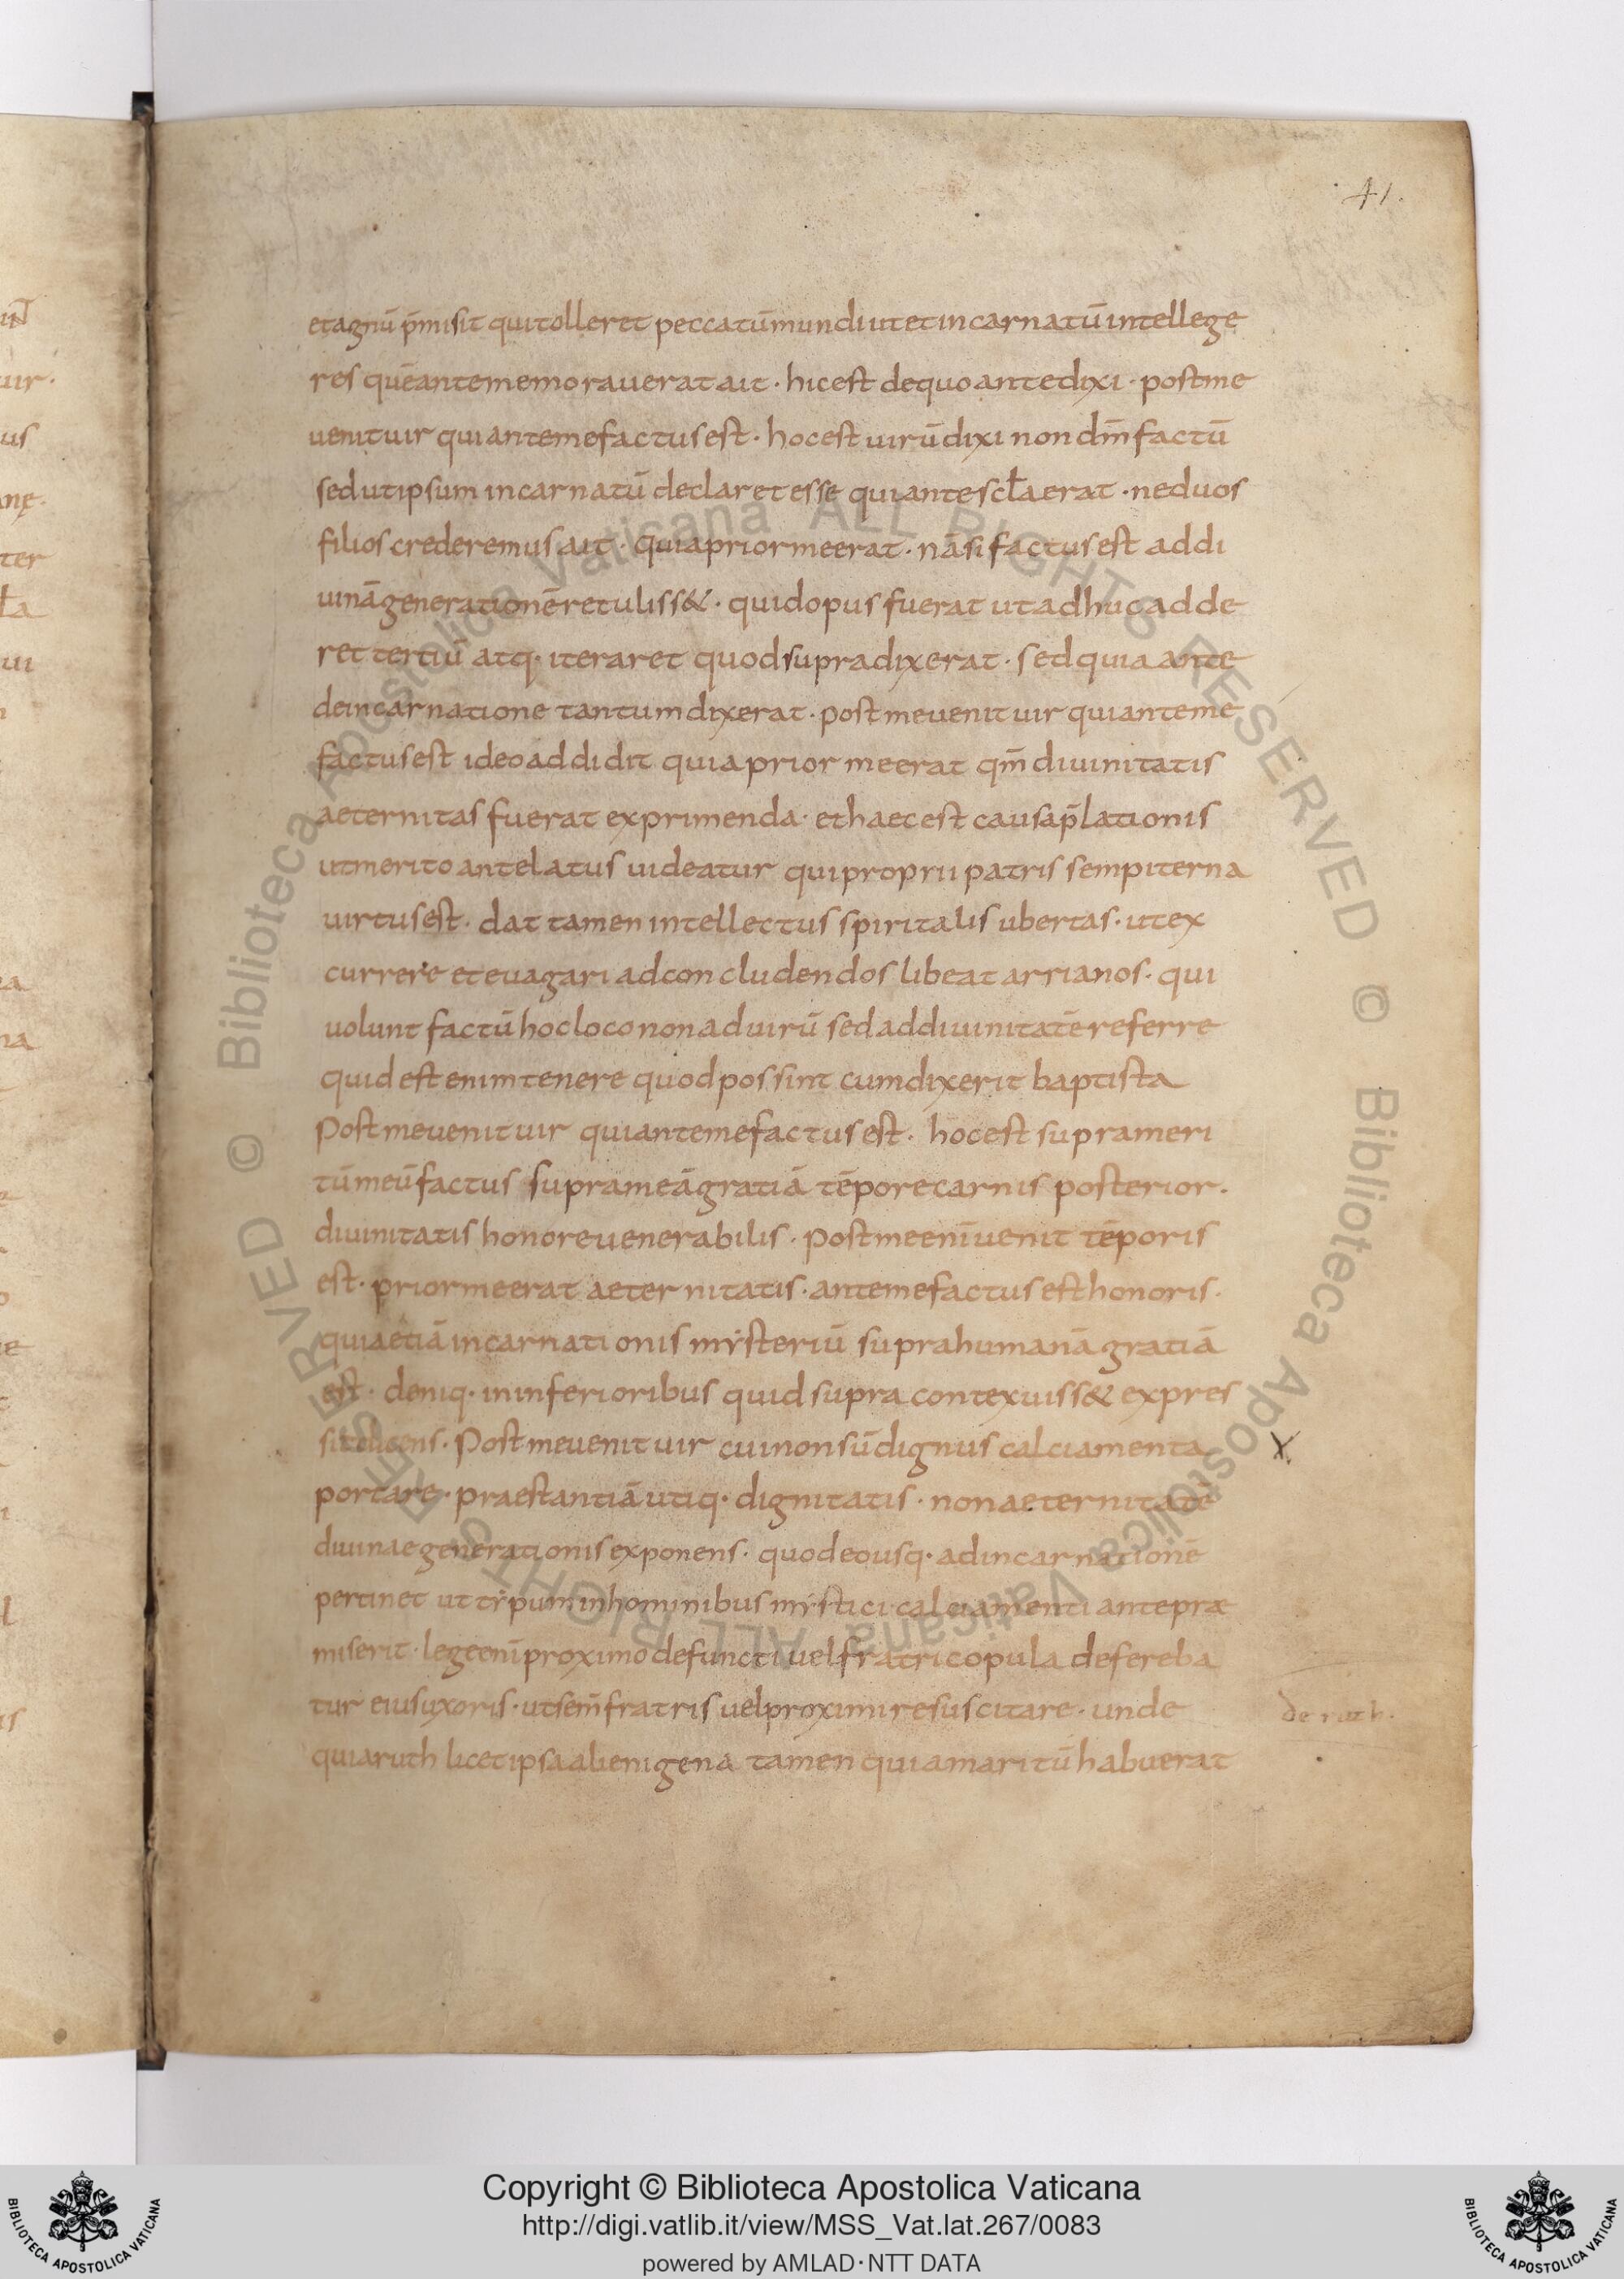 41.
et agnū p̄misit qui tolleret peccatū mundi ut et incarnatū intellege
res quē ante memorauerat ait · hic est de quo ante dixi · post me
uenit uir qui ante me factus est · hoc est uirū dixi non dn̄m factū
sed ut ipsum incarnatū declaret esse qui ante scl̄a erat · ne duos
filios crederemus ait · quia prior me erat · nā si factus est ad di
uinā generationē retuliss& · quid opus fuerat ut adhuc adde
ret tertiū atq· iteraret quod supra dixerat · sed quia ante
de incarnatione tantum dixerat · post me uenit uir qui ante me
factus est ideo addidit quia prior me erat qm̄ diuinitatis
aeternitas fuerat exprimenda · et haec est causa p̄lationis
ut merito antelatus uideatur qui proprii patris sempiterna
uirtus est · dat tamen intellectus spiritalis ubertas · ut ex
currere et euagari ad concludendos libeat arrianos · qui
uolunt factū hoc loco non ad uirū sed ad diuinitatē referre
quid est enim tenere quod possint cum dixerit baptista
Post me uenit uir qui ante me factus est · hoc est supra meri
tū meū factus supra meā gratiā tēpore carnis posterior ·
diuinitatis honore uenerabilis · Post me enī uenit tēporis
est · prior me erat aeternitatis · ante me factus est honoris ·
quia etiā incarnationis mẏsteriū supra humanā gratiā
est · deniq· in inferioribus quid supra contexuiss& expres
sit dicens · Post me uenit uir cui non sū dignus calciamenta
portare · praestantiā utiq· dignitatis · non aeternitatē
diuinae generationis exponens · quod eousq· ad incarnationē
pertinet ut tẏpum in hominibus mẏstici calciamenti ante præ
miserit · lege enī proximo defuncti uel fratri copula defereba
tur eius uxoris · ut sem̄ fratris uel proximi resuscitare · unde
de ruth.
quia ruth licet ipsa alienigena tamen quia maritū habuerat
Copyright © Biblioteca Apostolica Vaticana
http://digi.vatlib.it/view/MSS_Vat.lat.267/0083
powered by AMLAD · NTT DATA